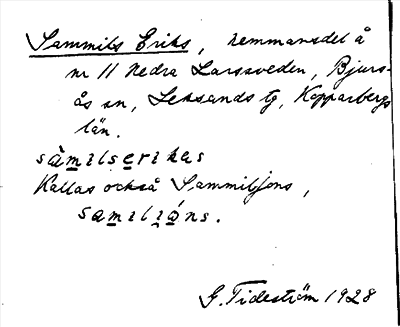 Sammils Eriks, hemmansdel å
nr 11 Nedra Larssveden, Bjurs-
ås sn, Leksands tg, Kopparbergs
län.
sàmilserikas
Kallas också Sammiljons,
samilións.
G. Tideström 1928